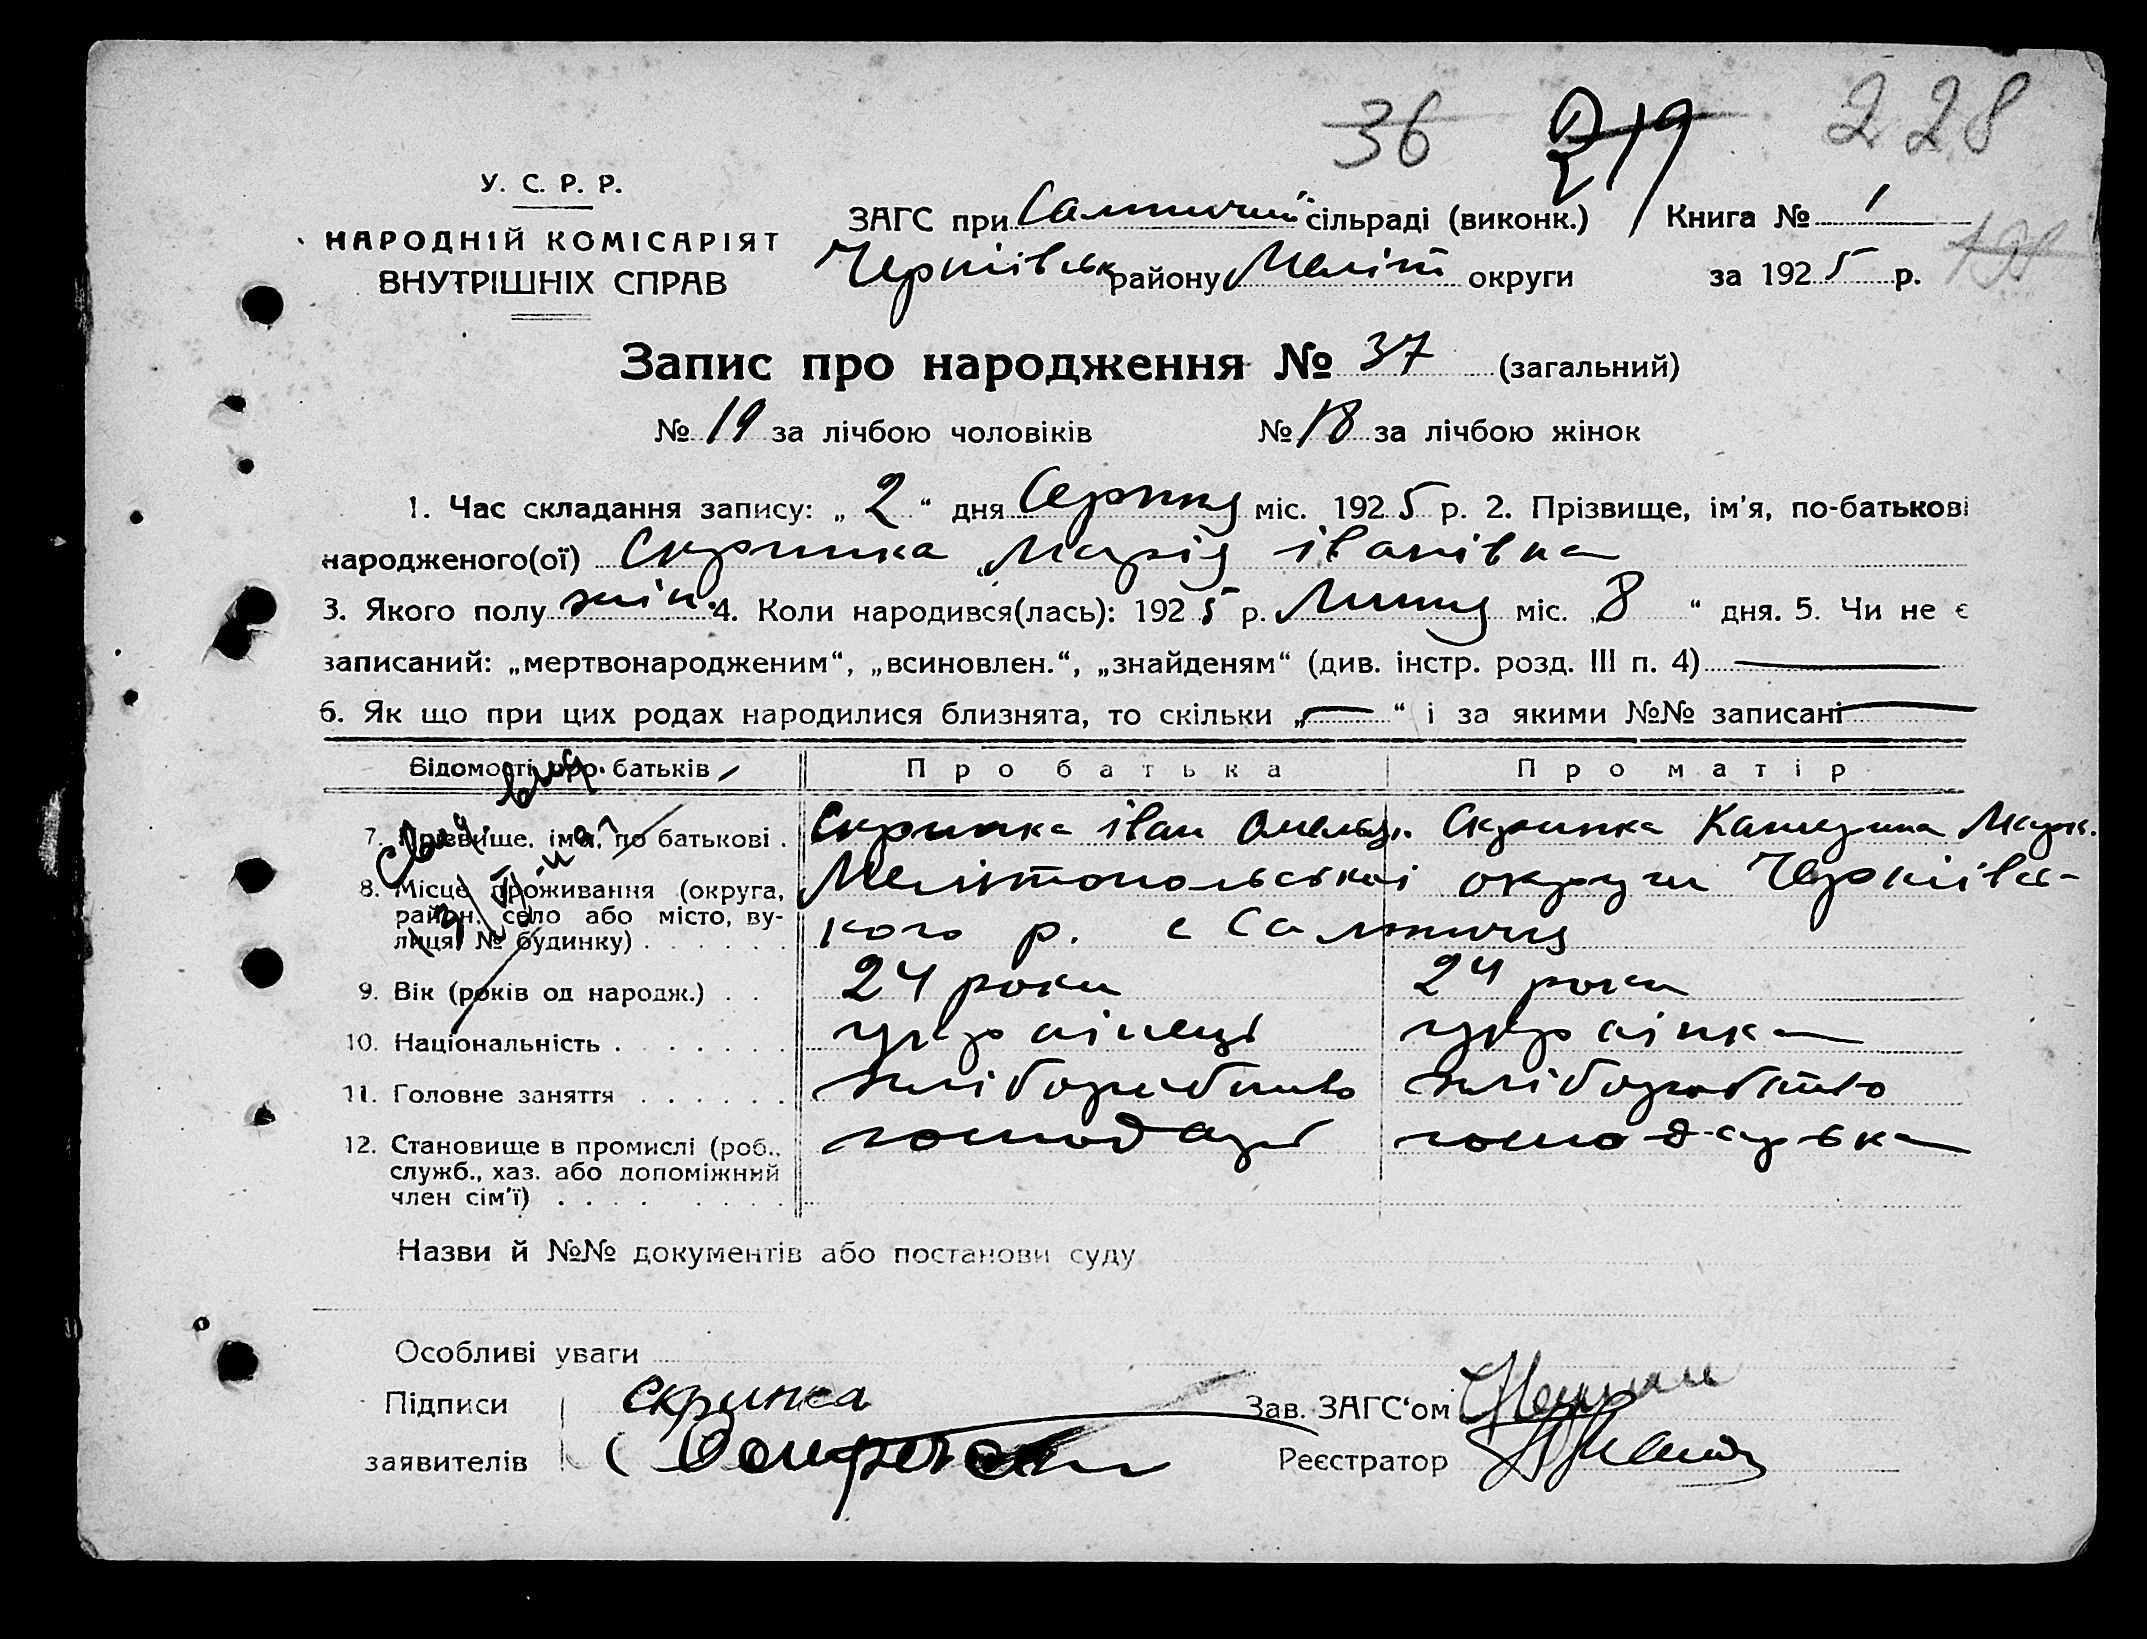 36 219 228
У. С. Р. Р.
НАРОДНІЙ КОМІСАРІЯТ
ВНУТРІШНІХ СПРАВ
ЗАГС при Салтичій сільраді (виконк.) Книга № 1
Чернігівськ району Меліт округи за 1925 р.
Запис про народження № 37 (загальний)
№ 19 за лічбою чоловіків № 18 за лічбою жінок
1. Час складання запису: „ 2 “ дня Серпня міс. 1925 р. 2. Прізвище, ім'я, по-батькові
народженого(ої) Скрипка Марія іванівна
3. Якого полу жін. 4. Коли народився(лась): 1925 р. Липня міс. 8 “ дня. 5. Чи не є
записаний: „мертвонародженим“, „всиновлен.“, „знайденям“ (див. інстр. розд. III п. 4)
6. Як що при цих родах народилися близнята, то скільки „ “ і за якими №№ записані
Відомості про батьків Про батька Про матір
7. Прізвище, імя, по батькові . Скрипка іван Омельк. Скрипка Катерина Марк.
8. Місце проживання (округа, район, село або місто, вулиця, № будинку) Мелітопольської округи Чернігівсь-
кого р. с Салтичя
9. Вік (років од народж.) . . 24 роки 24 роки
10. Національність . українець українка
11. Головне заняття хліборобство хліборобство
12. Становище в промислі (роб., господарь господарька
служб., хаз. або допоміжний
член сім'ї)
Назви й №№ документів або постанови суду
Особливі уваги
Підписи Скрипка Зав. ЗАГС‘ом
заявителів Реєстратор